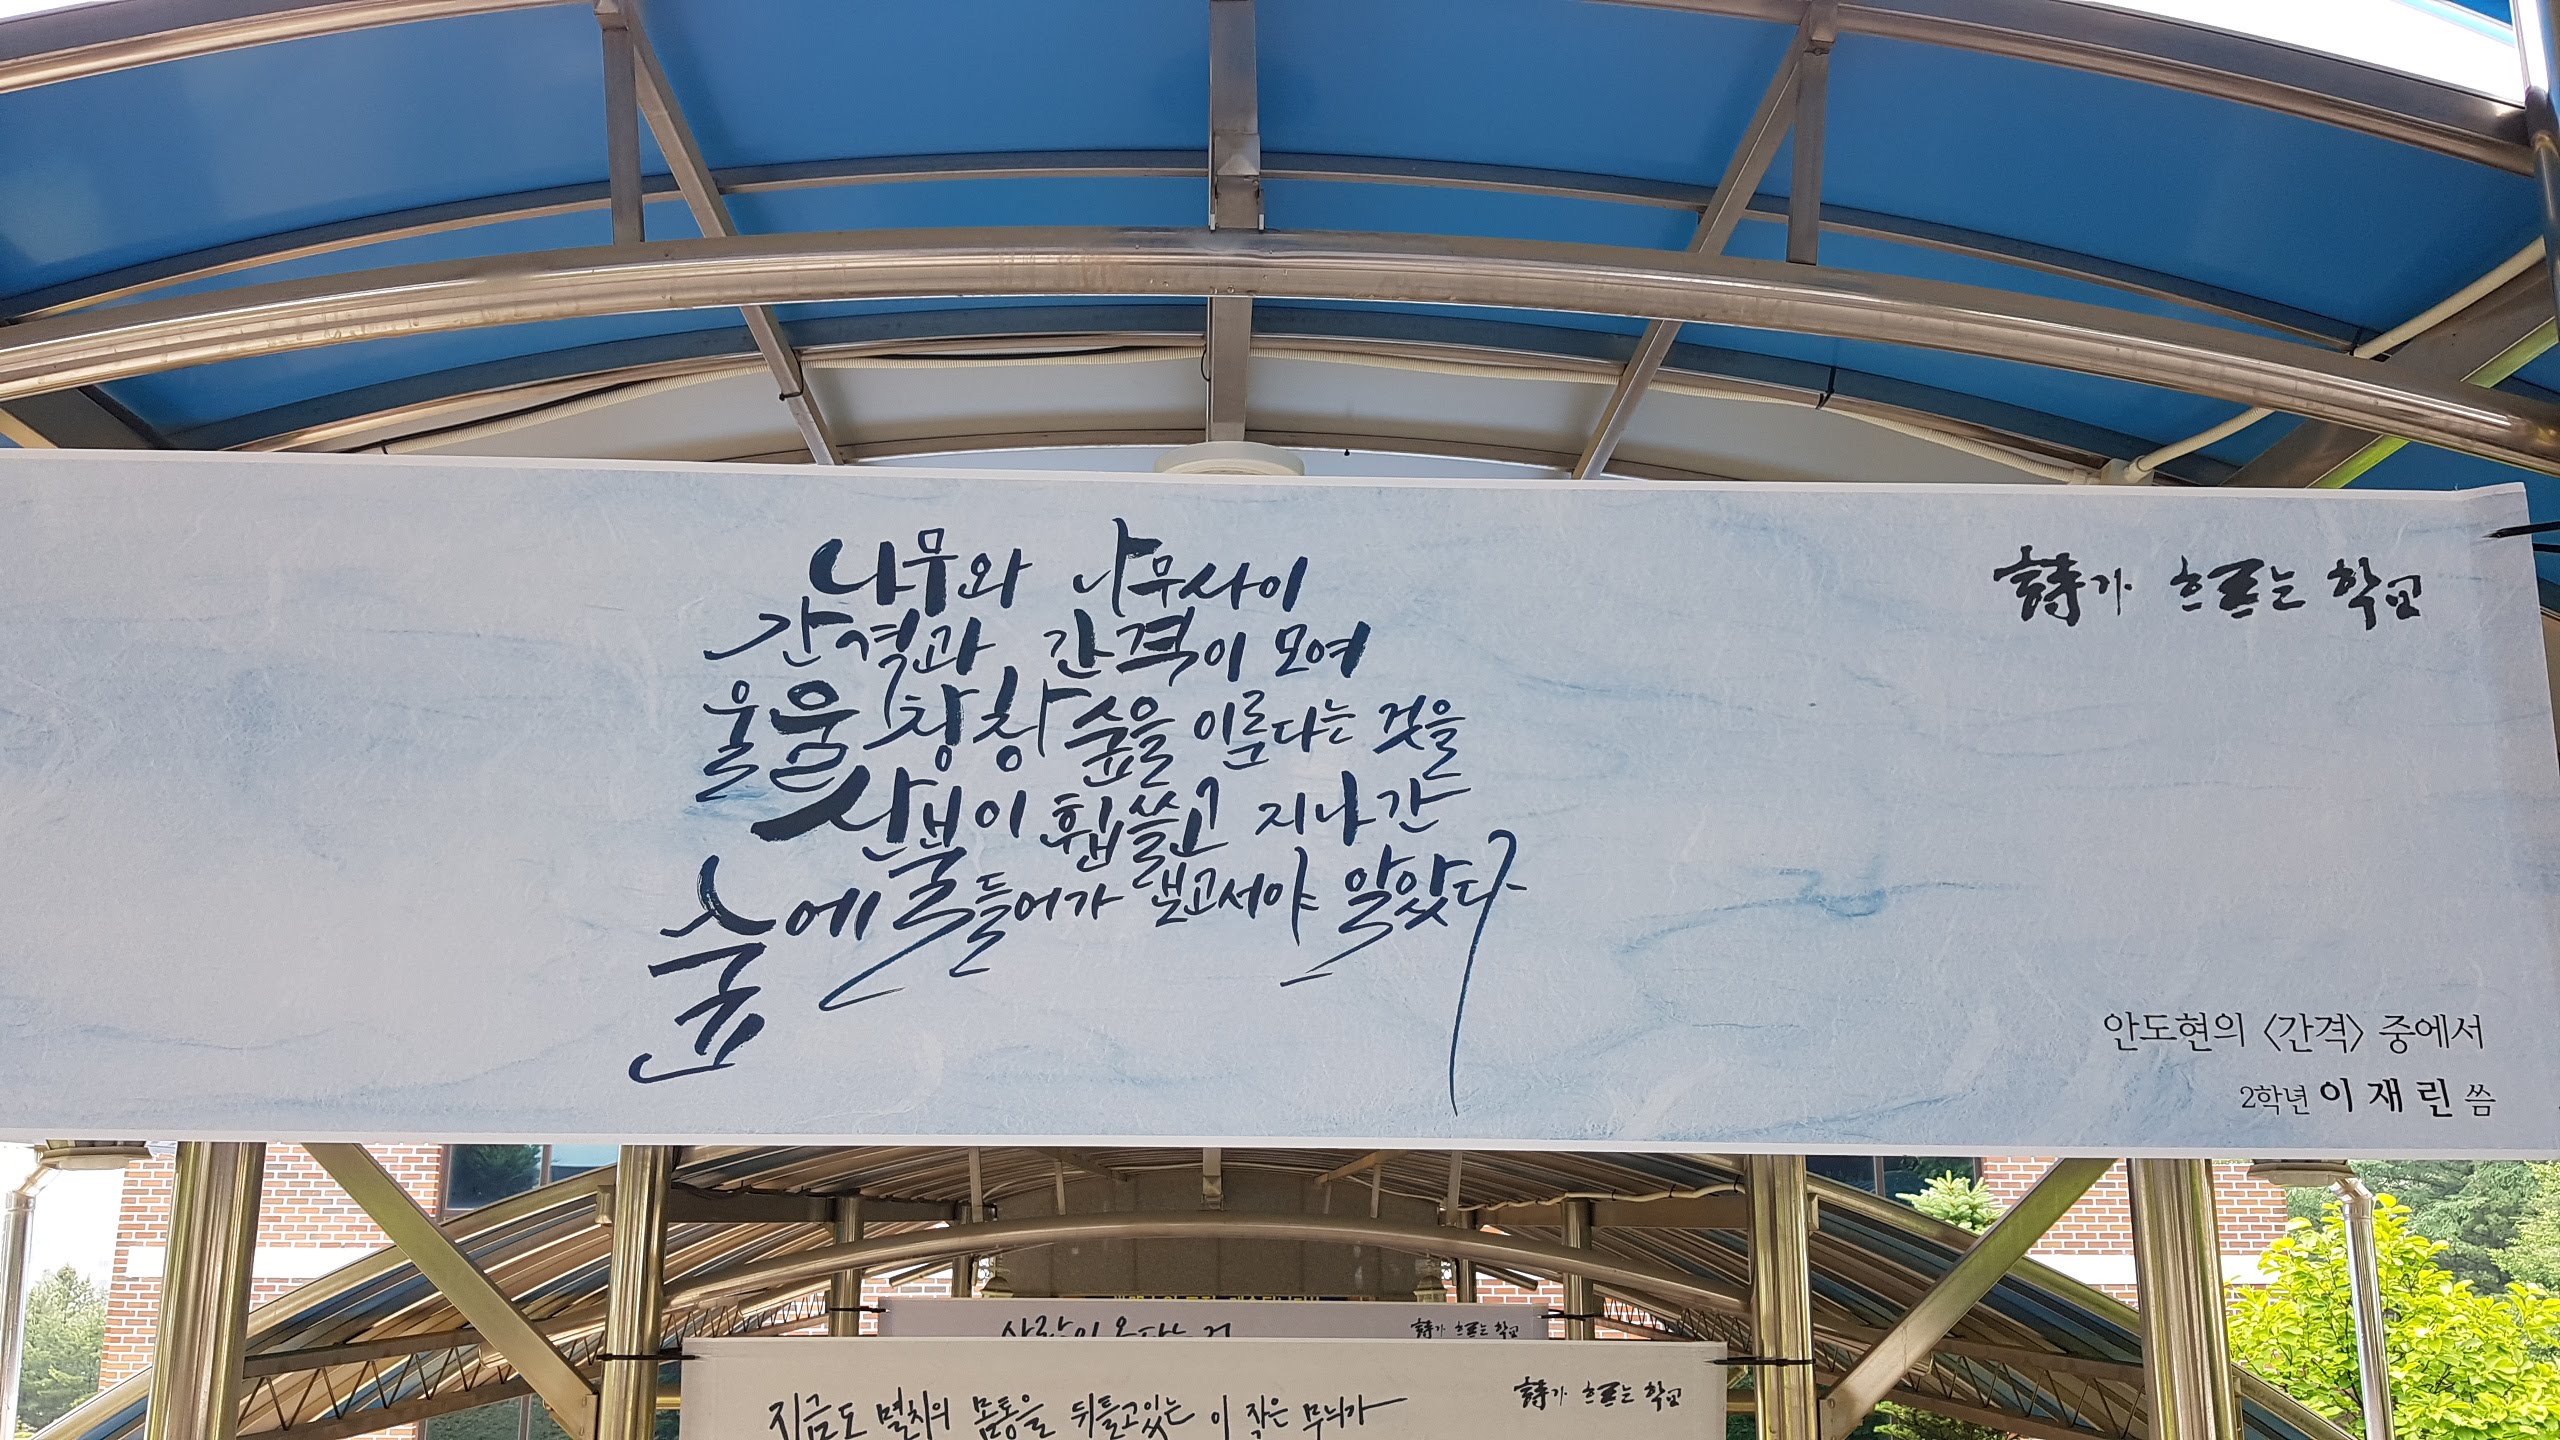 나무와 나무사이
간격과 간격이 모여
울울창창 숲을 이룬다는 것을
산불이 휩쓸고 지나간
숲에 들어가 보고서야 알았다
詩가 흐르는 학교
안도현의 <간격> 중에서
2학년 이재린 씀
詩가 흐르는 학교
지금도 멸치의 몸통을 뒤틀고있는 이 작은 무늬가
詩가 흐르는 학교